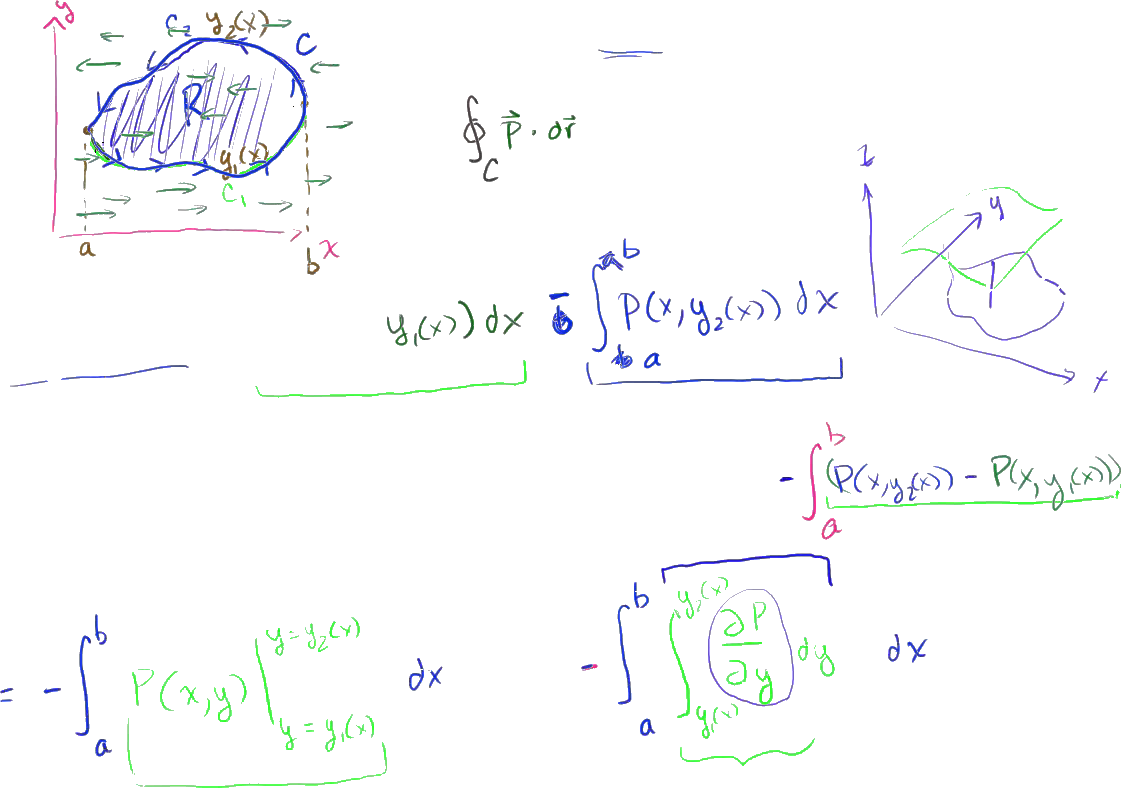 y
C₂ y₂(x)
C
R
y₁(x)
C₁
a
b
x
∮_C P⃗ · dr⃗
z
y
x
y₁(x)) dx - ∫_a^b P(x, y₂(x)) dx
- ∫_a^b (P(x, y₂(x)) - P(x, y₁(x)))
= - ∫_a^b P(x, y) |_{y = y₁(x)}^{y = y₂(x)} dx
- ∫_a^b ∫_{y₁(x)}^{y₂(x)} ∂P/∂y dy dx